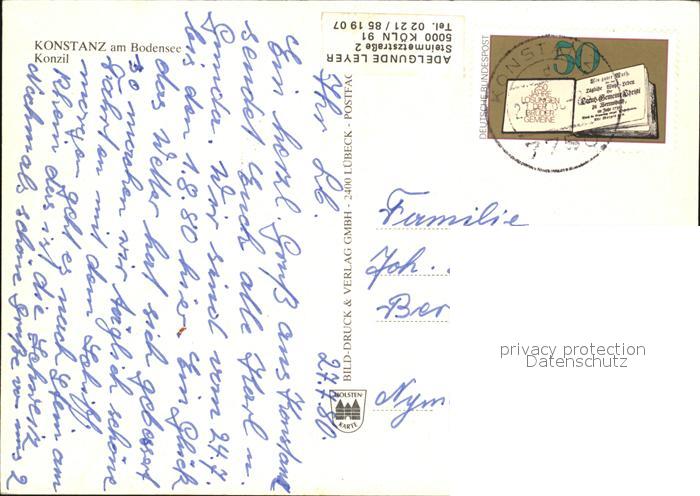 KONSTANZ am Bodensee
Konzil
ADELGUNDE LEYER
Steinmetzstraße 2
5000 KÖLN 91
Tel. 02 21 / 85 19 07
27.7.80.
Ihr Lb.
Ein herzl. Gruß aus Konstanz
sendet Euch alle Karl u.
Wir sind vom 24.7.
bis den 1.8.80 hier. Ein Glück
das Wetter hat sich gebessert
so machen wir täglich schöne
Fahrten mit dem Schiff
morgen geht es nach Stein am
Rhein das ist die Schweiz
Nochmals schöne Grüße von uns 2
BILD-DRUCK & VERLAG GMBH · 2400 LÜBECK · POSTFAC
HOLSTEN
KARTE
DEUTSCHE BUNDESPOST
50
250
JAHRE
LOSUNGEN
DER
BRÜDER
GEMEINE
KONSTANZ
Familie
Joh.
Ber
Nym
privacy protection
Datenschutz